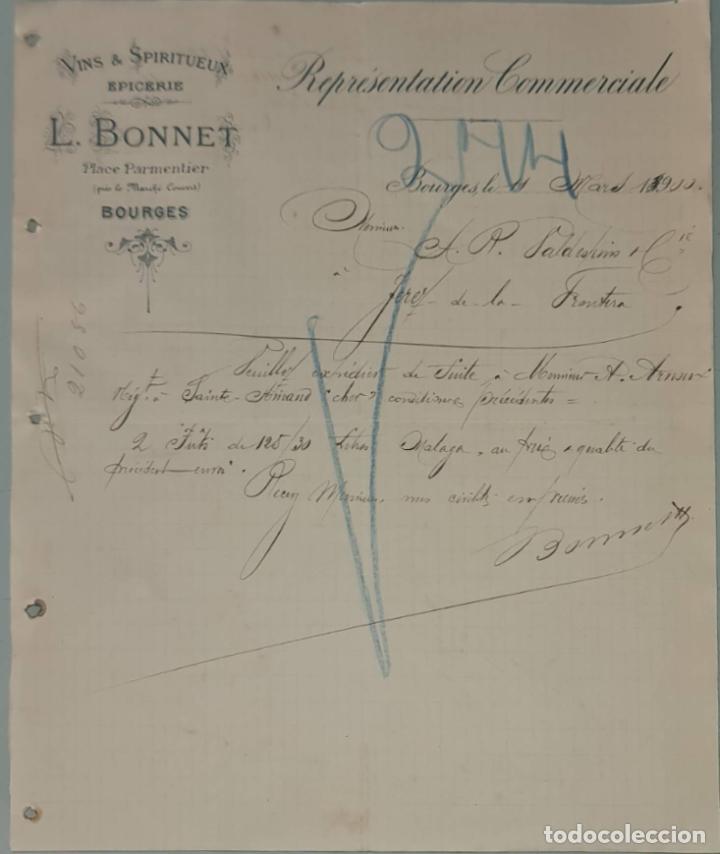 VINS & SPIRITUEUX
EPICERIE
L. BONNET
Place Parmentier
(près le Marché Couvert)
BOURGES
Représentation Commerciale
Bourges, le 11 Mars 1900.
Monsieur
A. R. Valdespino & Cie
à
Jerez de la Frontera
21086
Veuillez expédier de suite à Monsieur A.
Négt. à Sainte-Amand "cher" conditions précédentes =
2 futs de 125/30 Litres Malaga, au prix & qualité du
précédent envoi.
Recevez Monsieur, mes civilités empressées.
Bonnet
todocoleccion